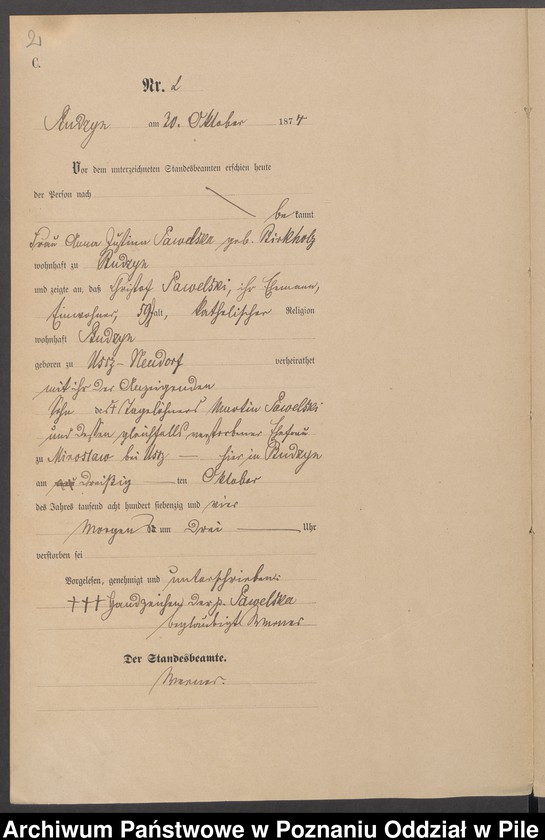 2
C.
Nr. 2
Budzyn am 30. Oktober 1874
Vor dem unterzeichneten Standesbeamten erschien heute
der Person nach
bekannt
Frau Anna Justina Pawelska geb. Birkholz
wohnhaft zu Budzyn
und zeigte an, daß Christof Pawelski, ihr Ehemann,
Einwohner, 59 J alt, katholischer Religion
wohnhaft Budzyn
geboren zu Uscz-Neudorf verheirathet
mit ihr der Anzeigenden
Sohn des † Tagelöhners Martin Pawelski
und dessen gleichfalls verstorbener Ehefrau
zu Miroslaw bei Uscz — hier in Budzyn
am dreißig — ten Oktober
des Jahres tausend acht hundert siebenzig und vier
Morgens um drei — Uhr
verstorben sei
Vorgelesen, genehmigt und unterschrieben:
††† Handzeichen der p. Pawelska
beglaubigt Werner
Der Standesbeamte.
Werner.
Archiwum Państwowe w Poznaniu Oddział w Pile